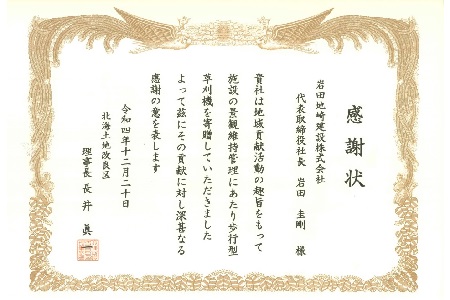 感謝状
岩田地崎建設株式会社
代表取締役社長 岩田 圭剛 様
貴社は地域貢献活動の趣旨をもって
施設の景観維持管理にあたり歩行型
草刈機を寄贈していただきました
よって茲にその貢献に対し深甚なる
感謝の意を表します
令和四年十二月二十日
北海土地改良区
理事長 長井 眞一